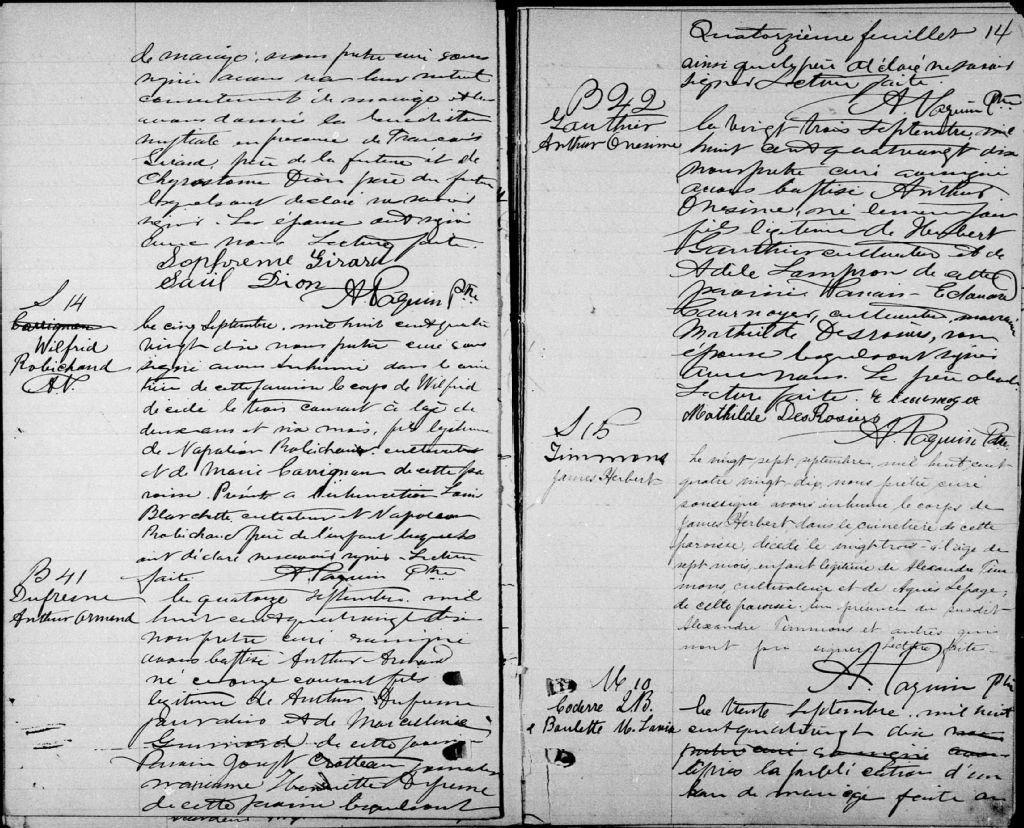 de mariage, nous prêtre curé sous
signé avons reçu leur mutuel
consentement de mariage et les
avons donné la bénédiction
nuptiale en presence de François
Girard, père de la future et de
Chrysostome Dion père du futur
lesquels ont déclaré ne savoir
signer. Les époux ont signé
avec nous Lecture faite
Sophreme Girard
Saül Dion
A Paquin Ptre
S 14
Carrignan
Wilfrid
Robichaud
A.P.
Le cinq Septembre, mil huit cent quatre
vingt dix nous prêtre curé sous
signé avons inhumé dans le cime
tière de cette paroisse le corps de Wilfrid
décédé le trois courant à l'age de
deux ans et six mois, fils légitime
de Napoléon Robichaud cultivateur
et de Marie Carrignan de cette pa
roisse. Présents a l'inhumation Louis
Blanchette cultivateur et Napoléon
Robichaud père de l'enfant lesquels
ont déclaré ne savoir signer. Lecture
faite A Paquin Ptre
B 41
Dufresne
Arthur Armand
Le quatorze Septembre, mil
huit cent quatrevingt dix
nous prêtre curé soussigné
avons baptisé Arthur Armand
né le onze courant fils
légitime de Arthur Dufresne
journalier et de Marcelline
de cette paroisse
Parrain Joseph Crotteau journalier
marraine Henriette Dufresne
de cette paroisse lesquels ont
Quatorzième feuillet 14
ainsi que le père déclaré ne savoir
signer Lecture faite
A Paquin Ptre
B 42
Gauthier
Arthur Onesime
Le vingt trois Septembre, mil
huit cent quatrevingt dix
nous prêtre curé soussigné
avons baptisé Arthur
Onesime, né le même jour
fils légitime de Herbert
Gauthier cultivateur et de
Adèle Lampron de cette
paroisse Parrain Edouard
Cournoyer, cultivateur, marraine
Mathilde Desrosiers, son
épouse lesquels ont signé
avec nous. Le père absent
Lecture faite. E Cournoyer
Mathilde DesRosiers
A Paquin Ptre
S 15
Timmons
James Herbert
Le vingt sept septembre, mil huit cent
quatre vingt dix, nous prêtre curé
soussigné avons inhumé le corps de
James Herbert dans le cimetière de cette
paroisse, décédé le vingt trois à l'age de
sept mois, enfant légitime de Alexandre Tim
mons, cultivateur et de Agnès Lepage,
de cette paroisse. En présence du susdit
Alexandre Timmons et autres qui
n'ont pu signer Lecture faite.
A. Paquin Ptre
M 10
Coderre J.B.
& Boulette M. Louisa
Le trente Septembre, mil huit
cent quatrevingt dix nous
prêtre curé soussigné avons
après la publication d'un
ban de mariage faite au